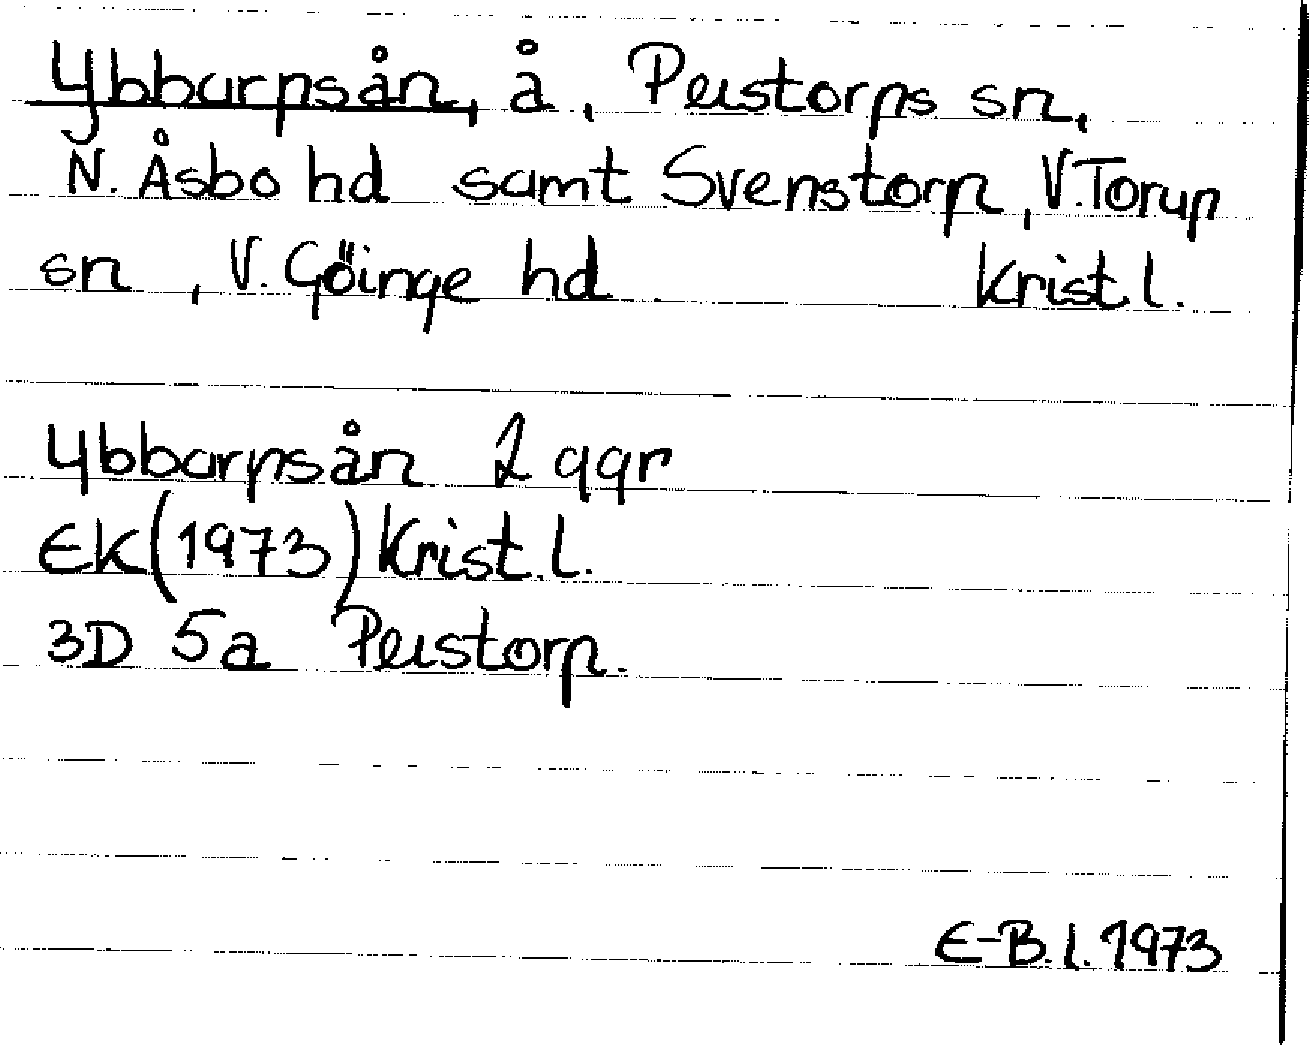 Ybbarpsån, å, Perstorps sn,
N. Åsbo hd samt Svenstorp, V. Torup
sn, V. Göinge hd Krist l.
Ybbarpsån 2 ggr
EK (1973) Krist. l.
3D 5a Perstorp.
E-B. l. 1973